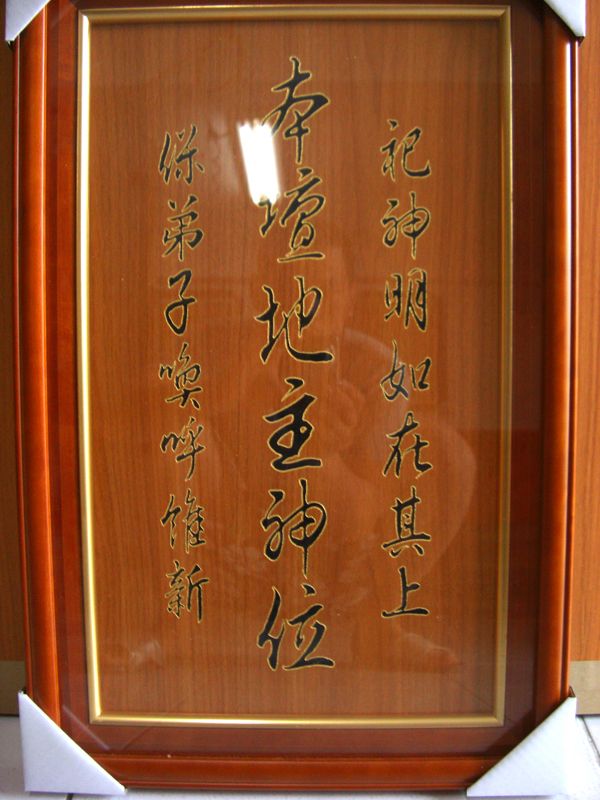 祀神明如在其上
本壇地主神位
保弟子喚呼維新